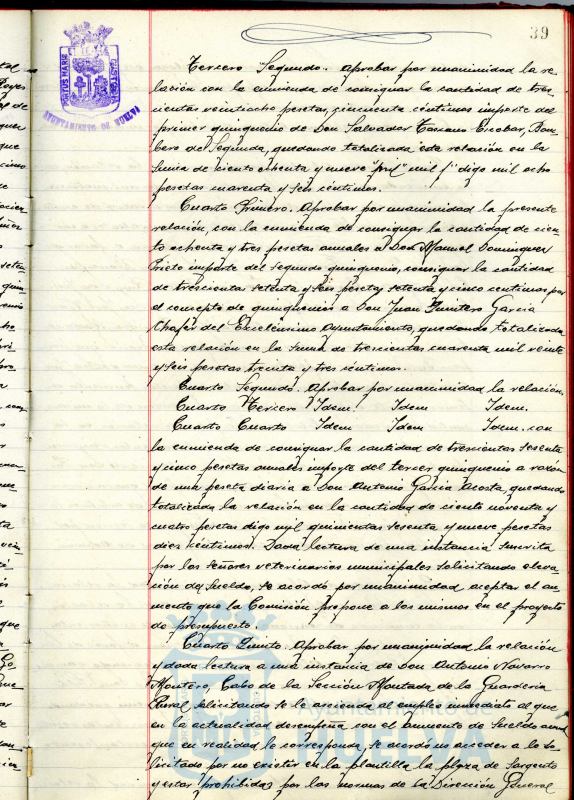 39
PORTUS MARIS ET TERRE CUSTODIA
AYUNTAMIENTO DE HUELVA
Tercero Segundo. Aprobar por unanimidad la re-
lación con la enmienda de consignar la cantidad de tres-
cientas veintiocho pesetas, cincuenta céntimos importe del
primer quinquenio de Don Salvador Toscano Escobar, Bom-
bero de Segunda, quedando totalizada esta relación en la
suma de ciento ochenta y nueve mil digo mil ocho
pesetas cuarenta y seis céntimos.
Cuarto Primero. Aprobar por unanimidad la presente
relación, con la enmienda de consignar la cantidad de cien-
to ochenta y tres pesetas anuales a Don Manuel Dominguez
Prieto importe del segundo quinquenio, consignar la cantidad
de trescientas setenta y seis pesetas, setenta y cinco centimos por
el concepto de quinquenios a Don Juan Quintero García
Chofer del Excelentísimo Ayuntamiento, quedando totalizada
esta relación en la suma de trescientas cuarenta mil veinte
y seis pesetas treinta y tres céntimos.
Cuarto Segundo. Aprobar por unanimidad la relación.
Cuarto Tercero Idem. Idem Idem.
Cuarto Cuarto Idem Idem Idem. con
la enmienda de consignar la cantidad de trescientas sesenta
y cinco pesetas anuales importe del tercer quinquenio a razón
de una peseta diaria a Don Antonio García Acosta, quedando
totalizada la relación en la cantidad de ciento noventa y
cuatro pesetas digo mil quinientas sesenta y nueve pesetas
diez céntimos. Dada lectura de una instancia suscrita
por los señores veterinarios municipales solicitando eleva-
ción de sueldo, se acordó por unanimidad aceptar el au-
mento que la Comisión propone a los mismos en el proyecto
de presupuesto.
Cuarto Quinto. Aprobar por unanimidad la relación
y dada lectura a una instancia de Don Antonio Navarro
Montero, Cabo de la Sección Montada de la Guardería
Rural solicitando se le ascienda al empleo inmediato al que
en la actualidad desempeña con el aumento de sueldo anual
que en realidad le corresponda, se acordó no acceder a lo so-
licitado por no existir en la plantilla la plaza de Sargento
y estar prohibidas por las normas de la Dirección General
Ayuntamiento de
HUELVA